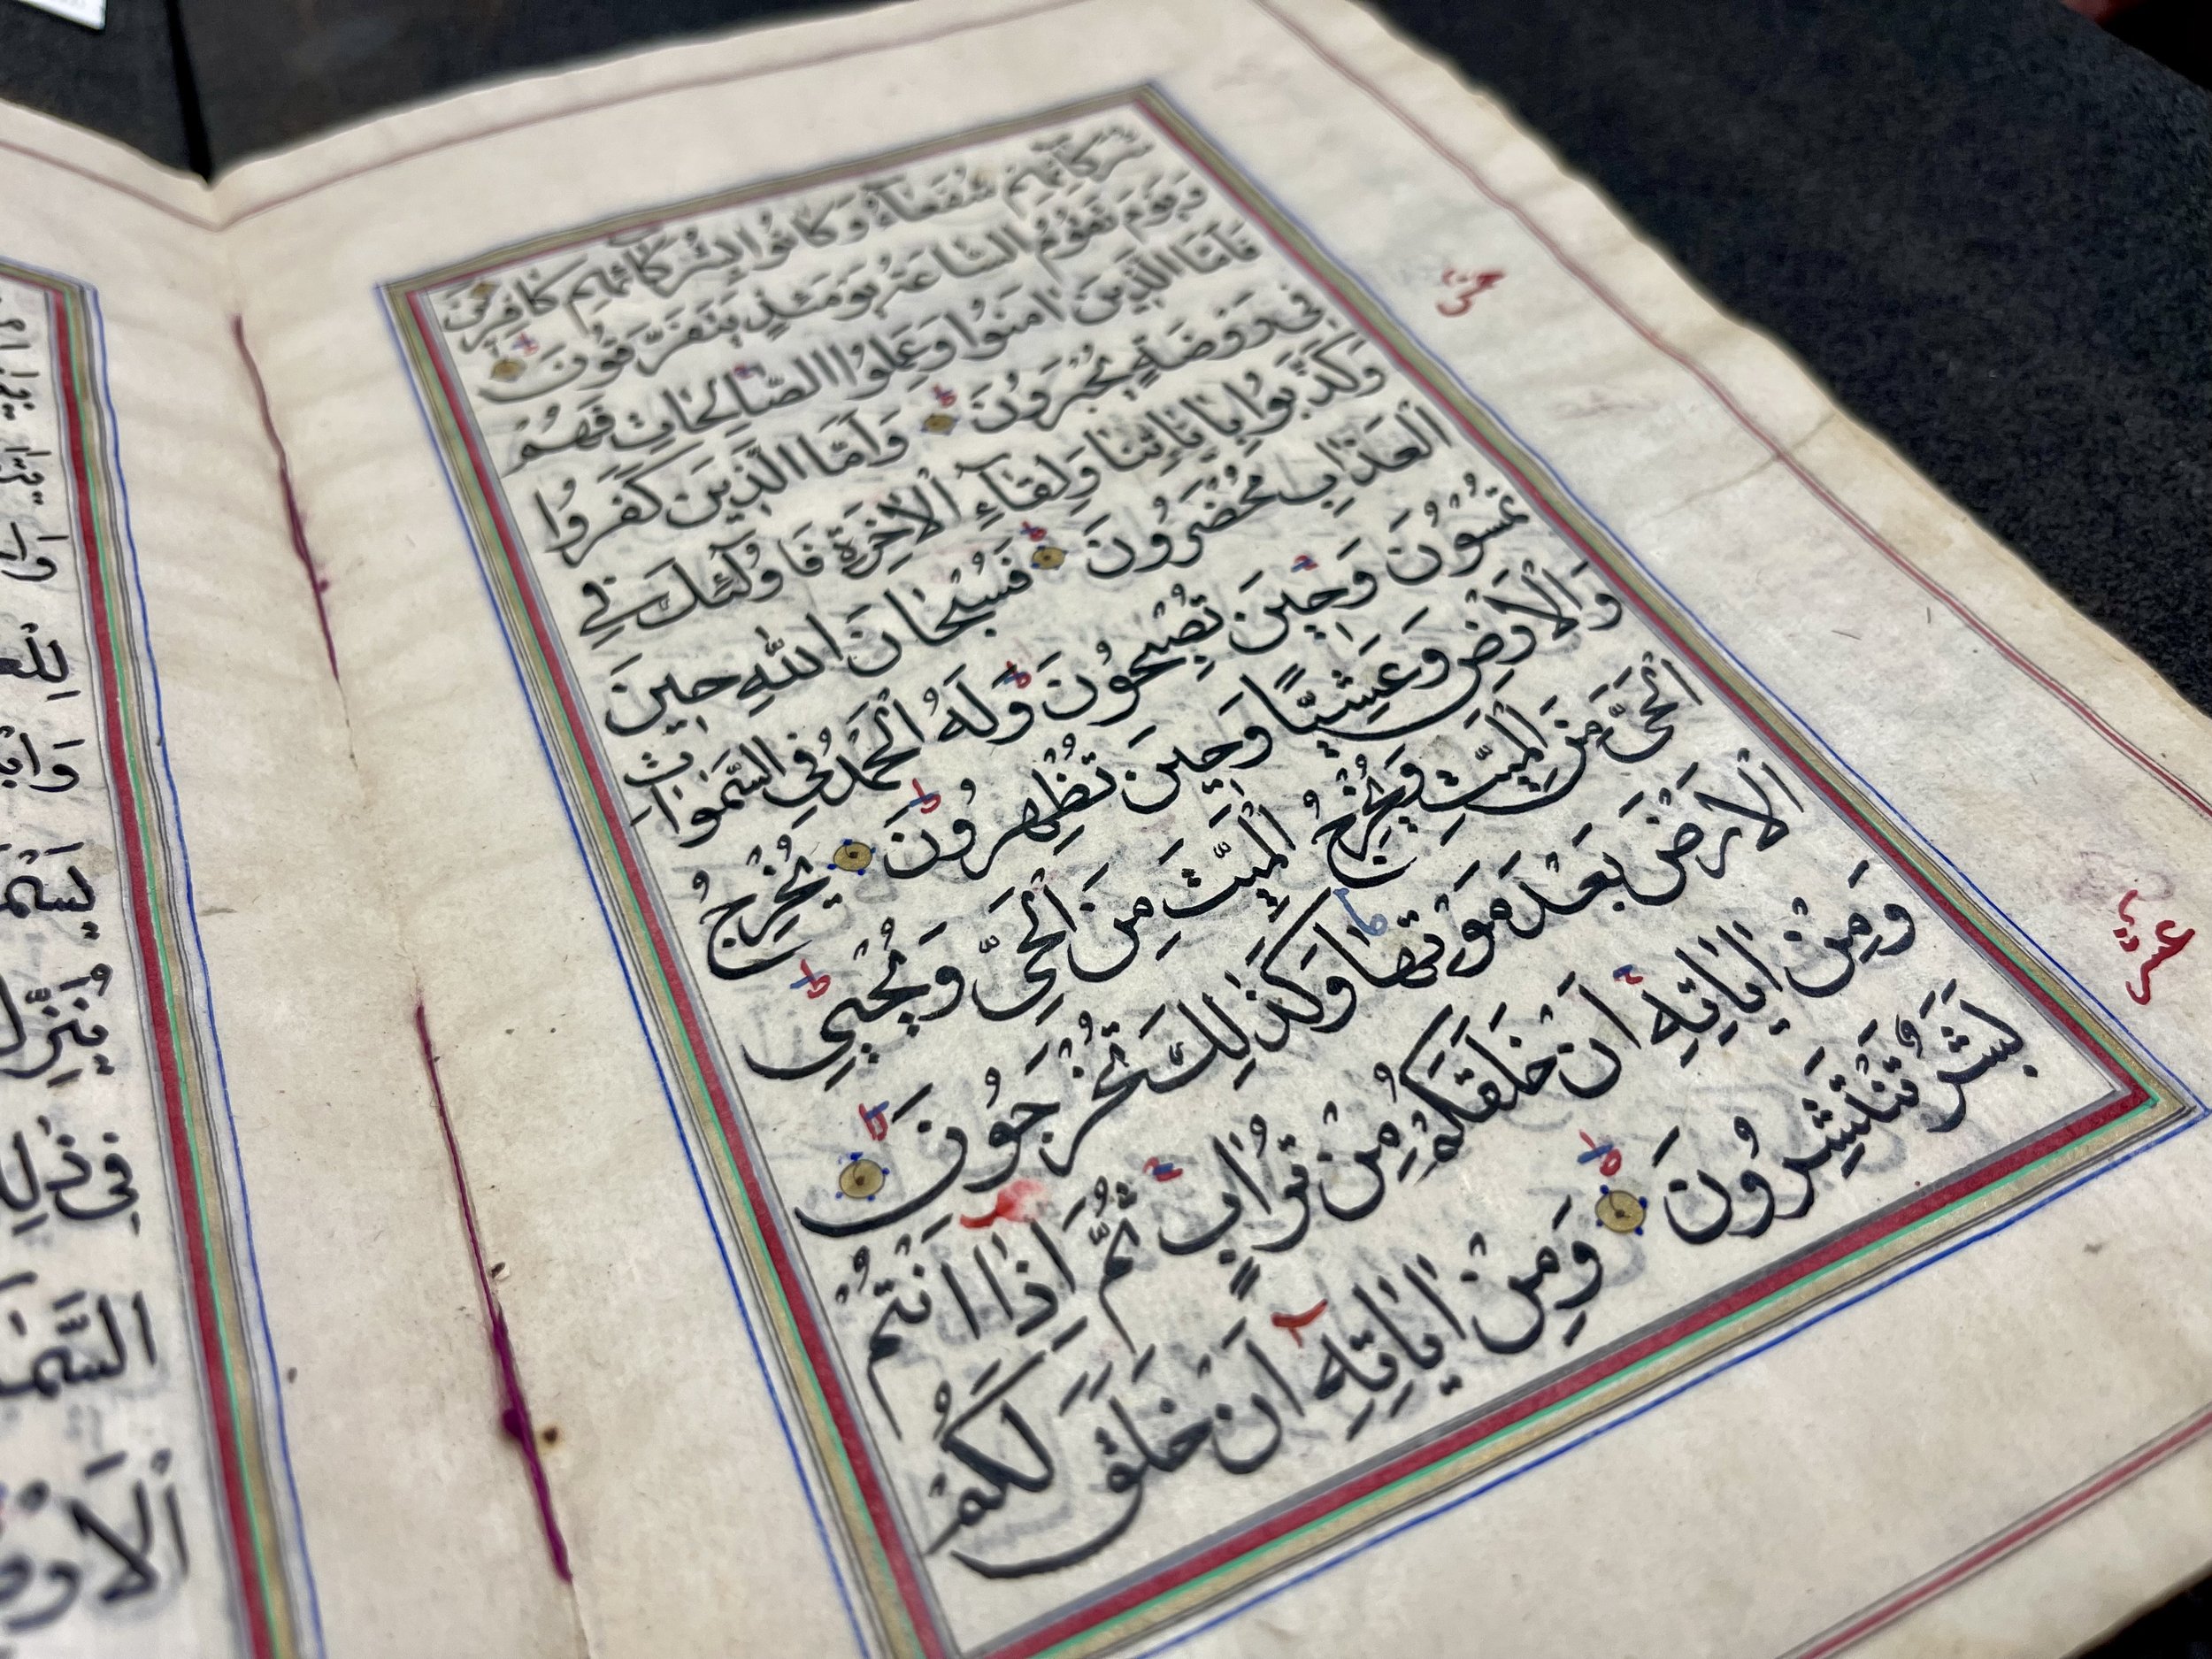 شُرَكَآئِهِمْ شُفَعَآءُ وَكَانُوا بِشُرَكَآئِهِمْ كَافِرِينَ
وَيَوْمَ تَقُومُ السَّاعَةُ يَوْمَئِذٍ يَتَفَرَّقُونَ
فَأَمَّا الَّذِينَ اٰمَنُوا وَعَمِلُوا الصَّالِحَاتِ فَهُمْ
فِى رَوْضَةٍ يُحْبَرُونَ وَاَمَّا الَّذِينَ كَفَرُوا
وَكَذَّبُوا بِاٰيَاتِنَا وَلِقَآءِ الْاٰخِرَةِ فَاُولٰٓئِكَ فِي
الْعَذَابِ مُحْضَرُونَ فَسُبْحَانَ اللّٰهِ حِينَ
تُمْسُونَ وَحِينَ تُصْبِحُونَ وَلَهُ الْحَمْدُ فِي السَّمٰوَاتِ
وَالْاَرْضِ وَعَشِيًّا وَحِينَ تُظْهِرُونَ يُخْرِجُ
الْحَىَّ مِنَ الْمَيِّتِ وَيُخْرِجُ الْمَيِّتَ مِنَ الْحَىِّ وَيُحْيِي
الْاَرْضَ بَعْدَ مَوْتِهَا وَكَذٰلِكَ تُخْرَجُونَ
وَمِنْ اٰيَاتِهٖ اَنْ خَلَقَكُمْ مِنْ تُرَابٍ ثُمَّ اِذَا اَنْتُمْ
بَشَرٌ تَنْتَشِرُونَ وَمِنْ اٰيَاتِهٖ اَنْ خَلَقَ لَكُمْ
لِلْعـ
بِسْمـ
يُنَزِّلُ
فِى ذٰلِـ
السَّمـ
الْاَرْضِ